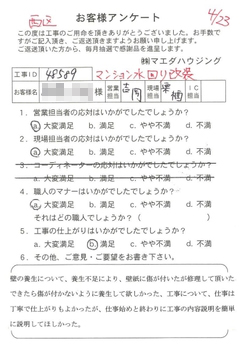 西区
お客様アンケート
4/23
この度は工事のご用命を頂きありがとうございました。お手数で
すがご記入頂き、ご返送頂きますようお願い申し上げます。
ご返送頂いた方から、毎月抽選で感謝品を進呈します。
㈱マエダハウジング
工事ID 48589 マンション水回り改装
お客様名 営業担当 吉岡 現場担当
1. 営業担当者の応対はいかがでしたでしょうか?
a. 大変満足 b. 満足 c. やや不満 d. 不満
2. 現場担当者の応対はいかがでしたでしょうか?
a. 大変満足 b. 満足 c. やや不満 d. 不満
3. コーディネーターの応対はいかがでしたでしょうか?
a. 大変満足 b. 満足 c. やや不満 d. 不満
4. 職人のマナーはいかがでしたでしょうか?
a. 大変満足 b. 満足 c. やや不満 d. 不満
それはどの職人でしょうか?( )
5. 工事の仕上がりはいかがでしたでしょうか?
a. 大変満足 b. 満足 c. やや不満 d. 不満
6. その他、ご意見・ご要望をお書き下さい。
壁の養生について、養生不足により、壁紙に傷が付いたが修理して頂いた
できたら傷が付かないように養生して欲しかった、工事について、仕事は
丁寧で仕上がりもよかったが、仕事始めと終わりに工事の内容説明を簡単
に説明してほしかった。